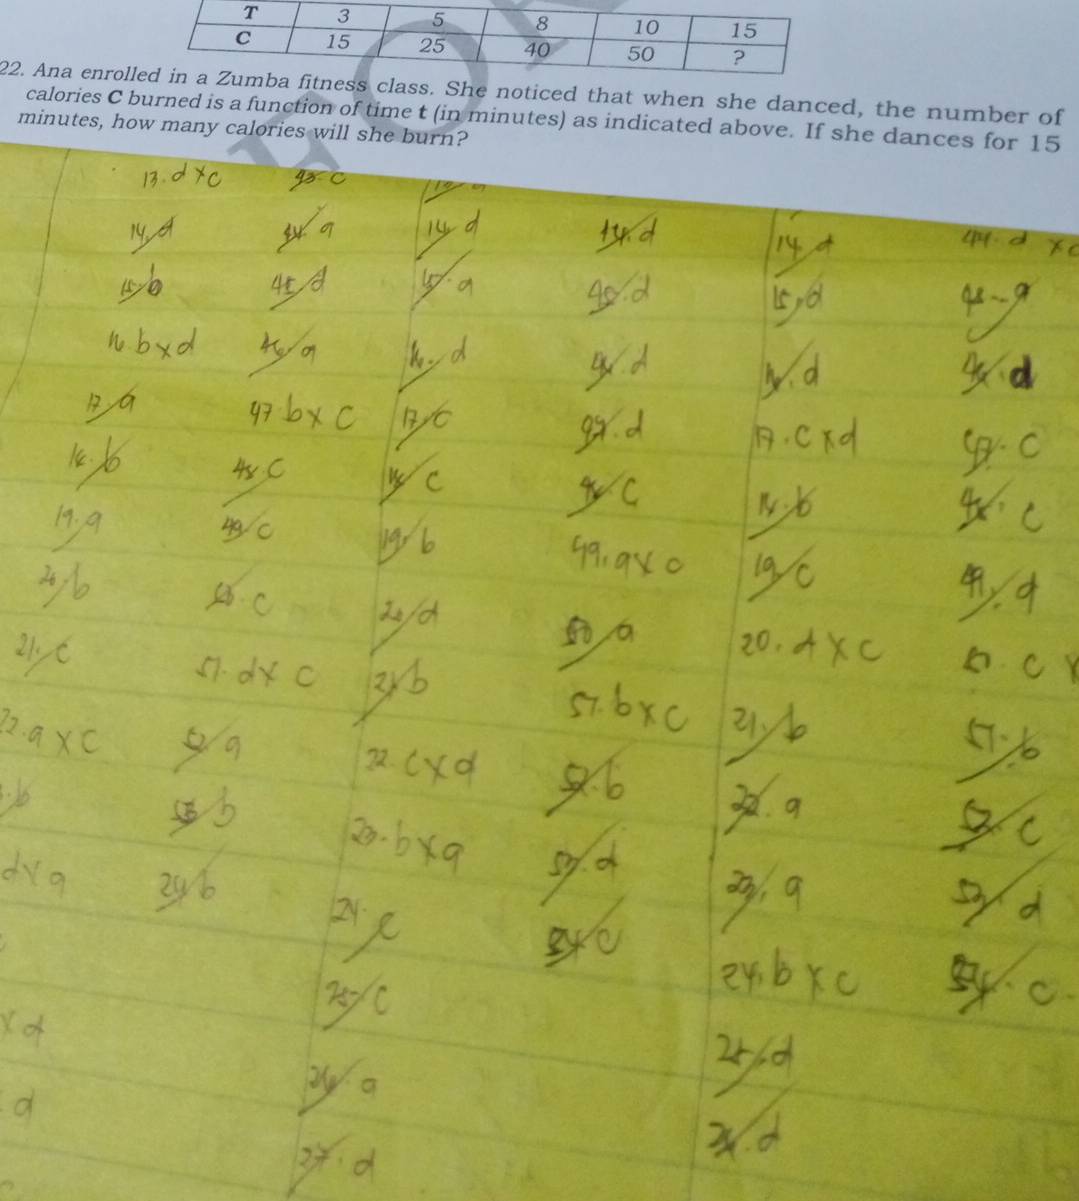 T 3 5 8 10 15
C 15 25 40 50 ?
22. Ana enrolled in a Zumba fitness class. She noticed that when she danced, the number of
calories C burned is a function of time t (in minutes) as indicated above. If she dances for 15
minutes, how many calories will she burn?
13. d x c
14. d
15. b
16. b x d
17. a
18. b
19. a
20. b
21. c
22. a x c
. b
d x a
x d
d
45. d
46. a
47. b x c
48. c
49. c
50. c
51. d x c
52. a
53. b
24. b
14. d
15. a
16. d
17. c
18. c
19. b
20. d
21. b
22. c x d
23. b x a
24. c
25. c
26. a
27. d
44. d
45. d
46. d
47. d
48. c
49. a x c
50. a
51. b x c
52. b
53. d
54. c
14. d
15. d
16. d
17. c x d
18. b
19. c
20. d x c
21. b
22. a
23. a
24. b x c
25. d
26. d
44. d x c
45. a
46. d
47. c
48. c
49. d
50. c x
51. b
52. c
53. d
54. c